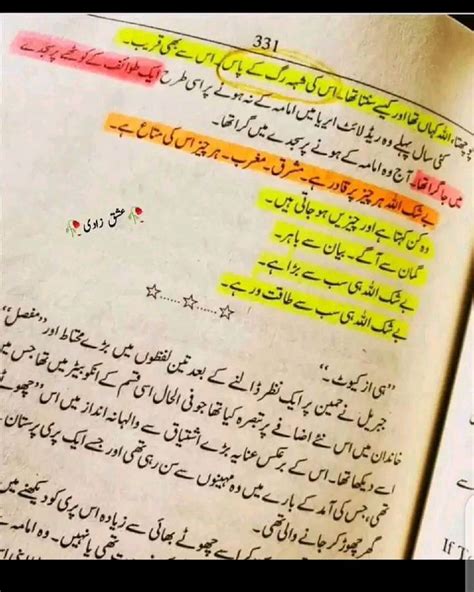 331
پوچھتا، اللہ کہاں تھا اور کیسے سنتا تھا۔ اس کی شہہ رگ کے پاس۔ اس سے بھی قریب۔
کئی سال پہلے وہ ریڈ لائٹ ایریا میں امامہ کے نہ ہونے پر اسی طرح ایک طوائف کے کوٹھے پر سجدے
میں جا گرا تھا۔ آج وہ امامہ کے ہونے پر سجدے میں گرا تھا۔
بے شک اللہ ہر چیز پر قادر ہے۔ مشرق۔ مغرب۔ ہر چیز اس کی متاع ہے۔
وہ کن کہتا ہے اور چیزیں ہو جاتی ہیں۔
گمان سے آگے۔ بیان سے باہر۔
بے شک اللہ ہی سب سے بڑا ہے۔
بے شک اللہ ہی سب سے طاقت ور ہے۔
عشق زادی
☆......☆......☆
"ہی از کیوٹ۔"
جبریل نے حمین پر ایک نظر ڈالنے کے بعد تین لفظوں میں بڑے محتاط اور "مفصل"
خاندان میں اس نئے اضافے پر تبصرہ کیا تھا جو فی الحال اسی قسم کے انکوبیٹر میں تھا جس میں
اسے دیکھا تھا۔ اس کے برعکس عنایہ بڑے اشتیاق سے والہانہ انداز میں اس "چھوٹے
تھی، جس کی آمد کے بارے میں وہ مہینوں سے سن رہی تھی اور جسے ایک پری پرستان سے
گھر چھوڑ کر جانے والی تھی۔
اسے چھوٹے بھائی سے زیادہ اس پری کو دیکھنے میں
تھی یا نہیں۔ وہ امامہ
If